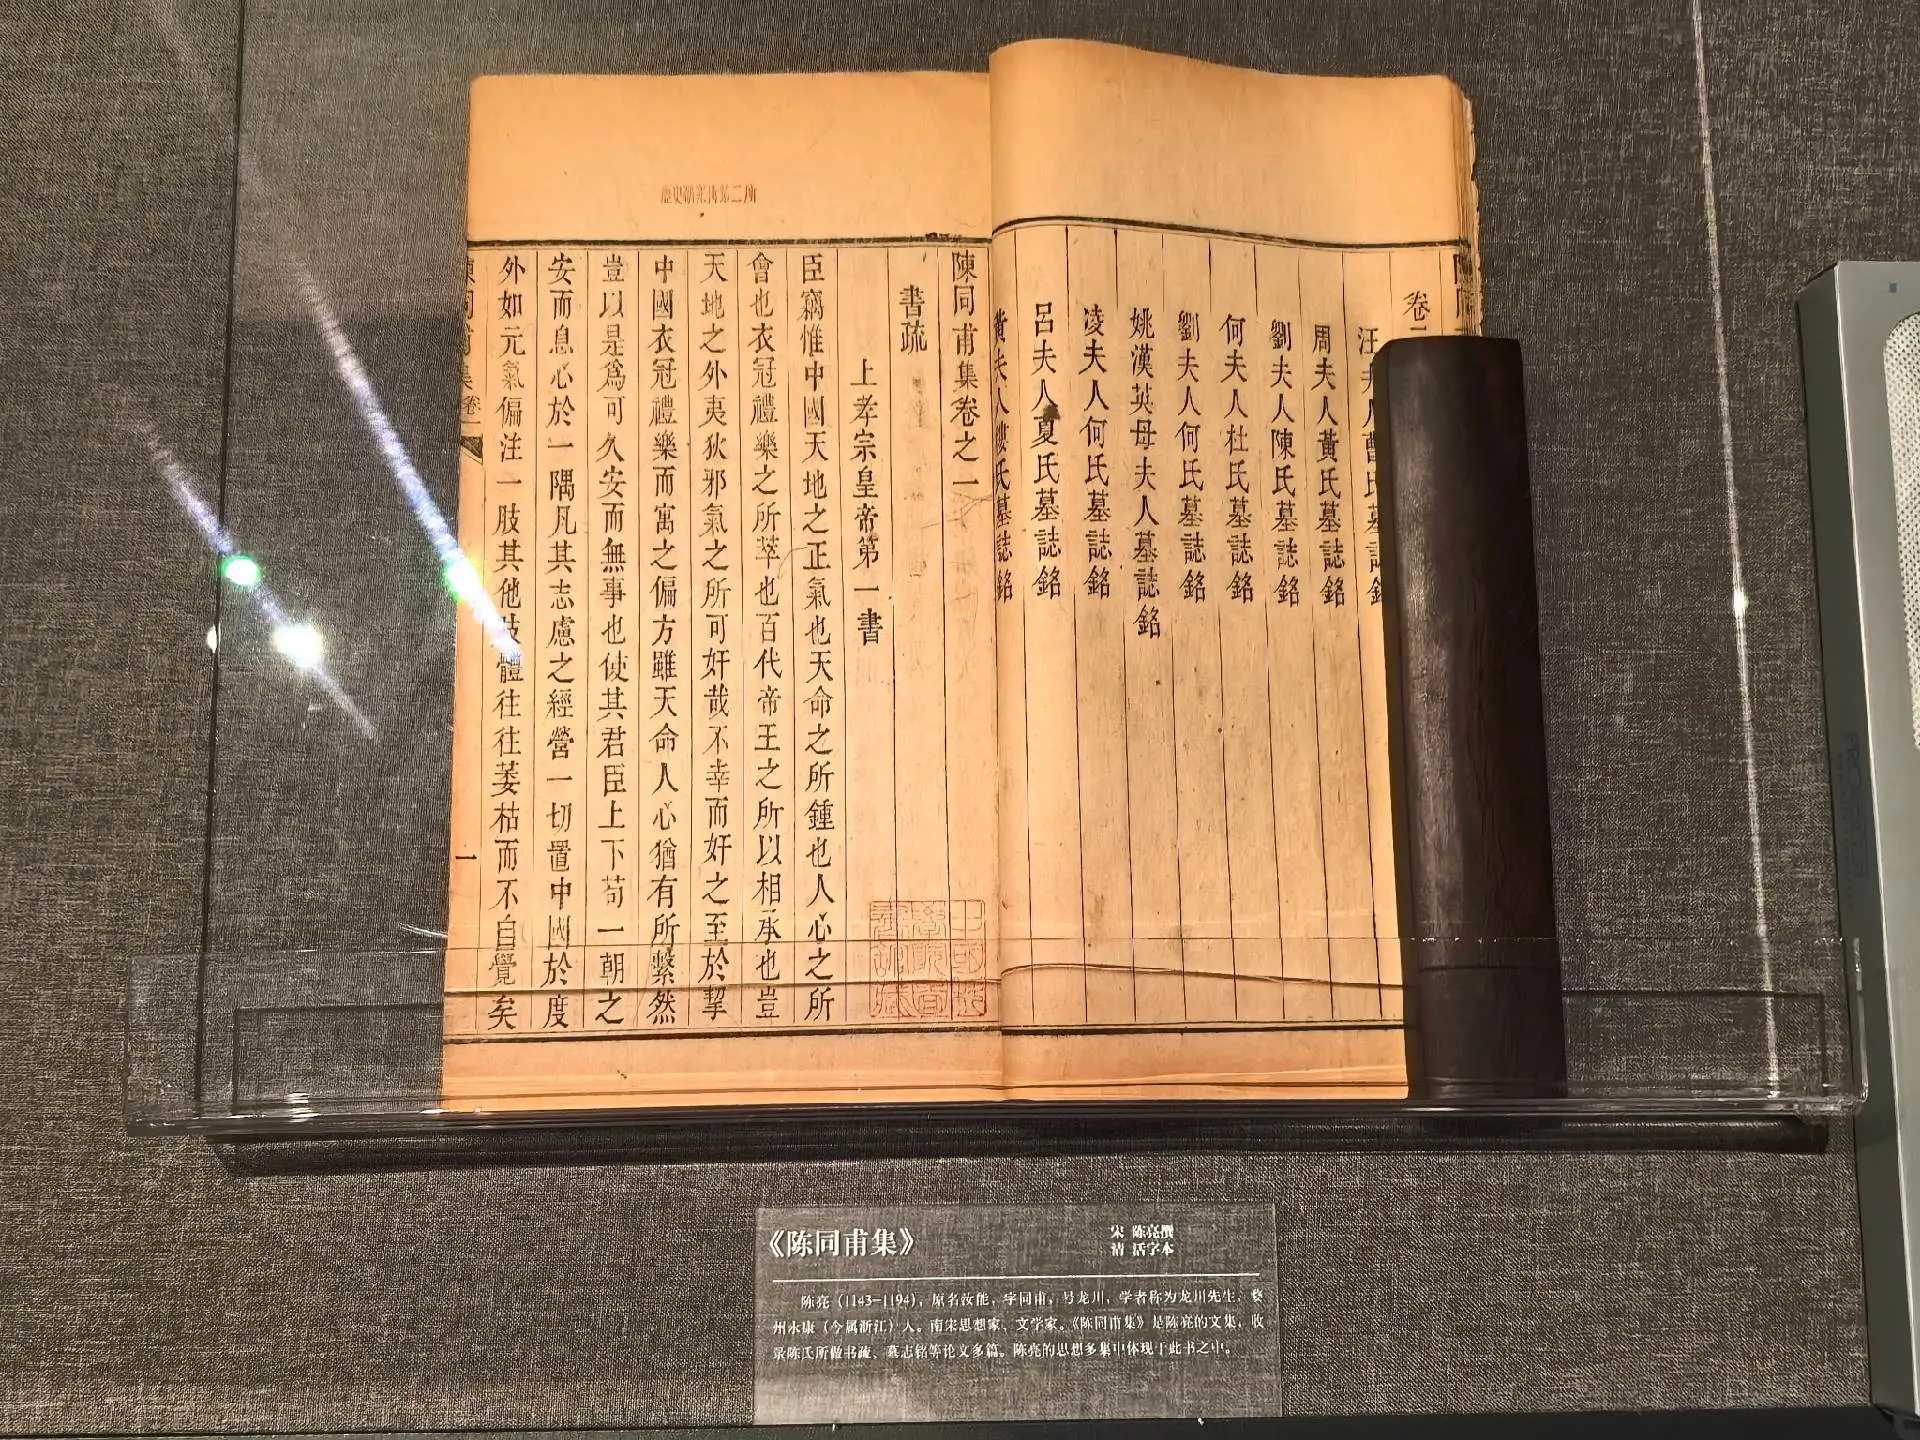 卷
汪夫人曹氏墓誌銘
周夫人黃氏墓誌銘
劉夫人陳氏墓誌銘
何夫人杜氏墓誌銘
劉夫人何氏墓誌銘
姚漢英母夫人墓誌銘
凌夫人何氏墓誌銘
呂夫人夏氏墓誌銘
黃夫人樓氏墓誌銘
歷史研究所第二所
陳同甫集卷之一
書疏
上孝宗皇帝第一書
臣竊惟中國天地之正氣也天命之所鍾也人心之所
會也衣冠禮樂之所萃也百代帝王之所以相承也豈
天地之外夷狄邪氣之所可奸哉不幸而奸之至於挈
中國衣冠禮樂而寓之偏方雖天命人心猶有所繫然
豈以是為可久安而無事也使其君臣上下苟一朝之
安而息心於一隅凡其志慮之經營一切置中國於度
外如元氣偏注一肢其他肢體往往萎枯而不自覺矣
陳同甫集 卷一
一
《陈同甫集》
宋 陈亮撰
清 活字本
陈亮（1143—1194），原名汝能，字同甫，号龙川，学者称为龙川先生，婺
州永康（今属浙江）人。南宋思想家、文学家。《陈同甫集》是陈亮的文集，收
录陈氏所做书疏、墓志铭等论文多篇。陈亮的思想多集中体现于此书之中。